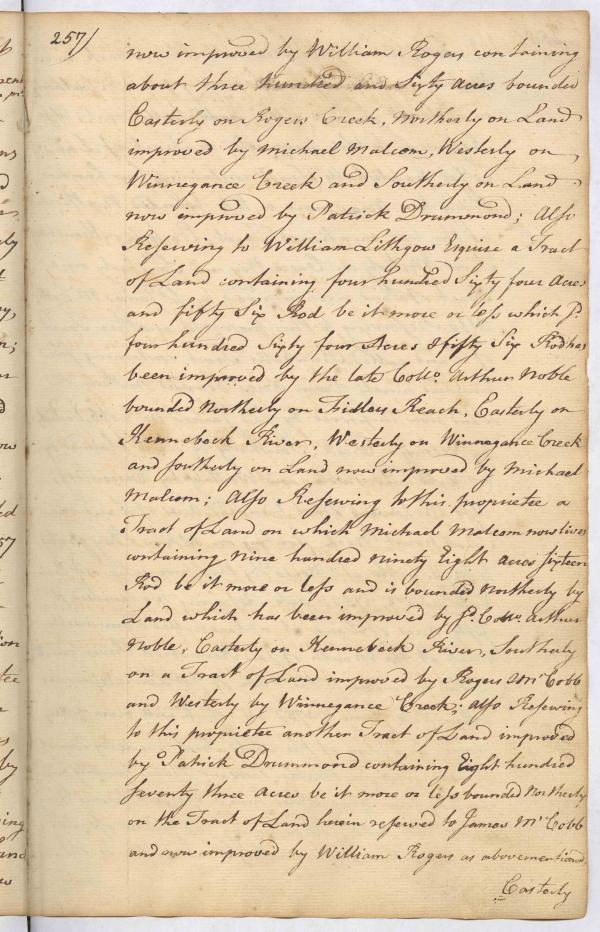 257/
now improved by William Rogers containing
about three hundred and Sixty acres bounded
Easterly on Rogers Creek, Northerly on Land
improved by Michael Malcom, Westerly on
Winnegance Creek and Southerly on Land
now improved by Patrick Drummond; Also
Reserving to William Lithgow Esquire a Tract
of Land containing four hundred Sixty four Acres
and fifty Six Rod be it more or less which sd.
four hundred Sixty four Acres & fifty Six Rod has
been improved by the late Collo. Arthur Noble
bounded Northerly on Fidlers Reach, Easterly on
Kennebeck River, Westerly on Winnegance Creek
and southerly on Land now improved by Michael
Malcom; Also Reserving to this proprietee a
Tract of Land on which Michael Malcom now lives
containing Nine hundred ninety Eight acres sixteen
Rod be it more or less and is bounded Northerly by
Land which has been improved by sd. Collo. Arthur
Noble, Easterly on Kennebeck River, Southerly
on a Tract of Land improved by Rogers & Mc Cobb
and Westerly by Winnegance Creek; also Reserving
to this proprietee another Tract of Land improved
by Patrick Drummond containing Eight hundred
seventy three acres be it more or less bounded Northerly
on the Tract of Land herein reserved to James Mc Cobb
and now improved by William Rogers as abovementioned
Easterly